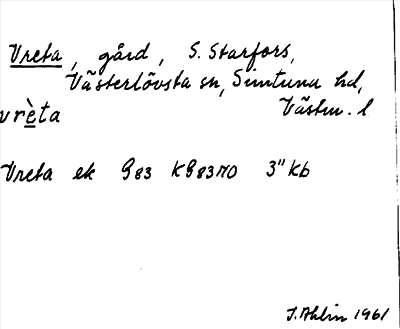 Vreta, gård, S. Starfors,
Västerlövsta sn, Simtuna hd,
vrèta Västm. l
Vreta ek G83 KG8370 3" kb
J. Ahlin 1961